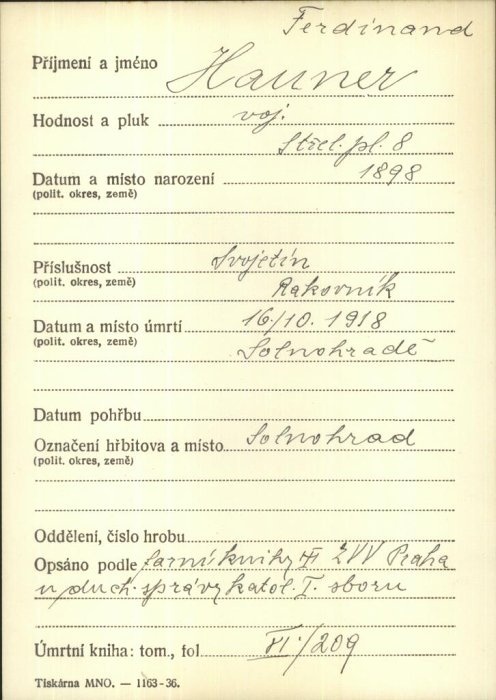 Ferdinand
Příjmení a jméno Hauner
Hodnost a pluk voj.
Střel. pl. 8
Datum a místo narození 1898
(polit. okres, země)
Příslušnost Svojetín
(polit. okres, země) Rakovník
Datum a místo úmrtí 16./10. 1918
(polit. okres, země) Solnohradě
Datum pohřbu
Označení hřbitova a místo Solnohrad
(polit. okres, země)
Oddělení, číslo hrobu
Opsáno podle farní knihy ZVV Praha
u duch. správy katol. I. sboru
Úmrtní kniha: tom., fol. VI./209
Tiskárna MNO. — 1163-36.